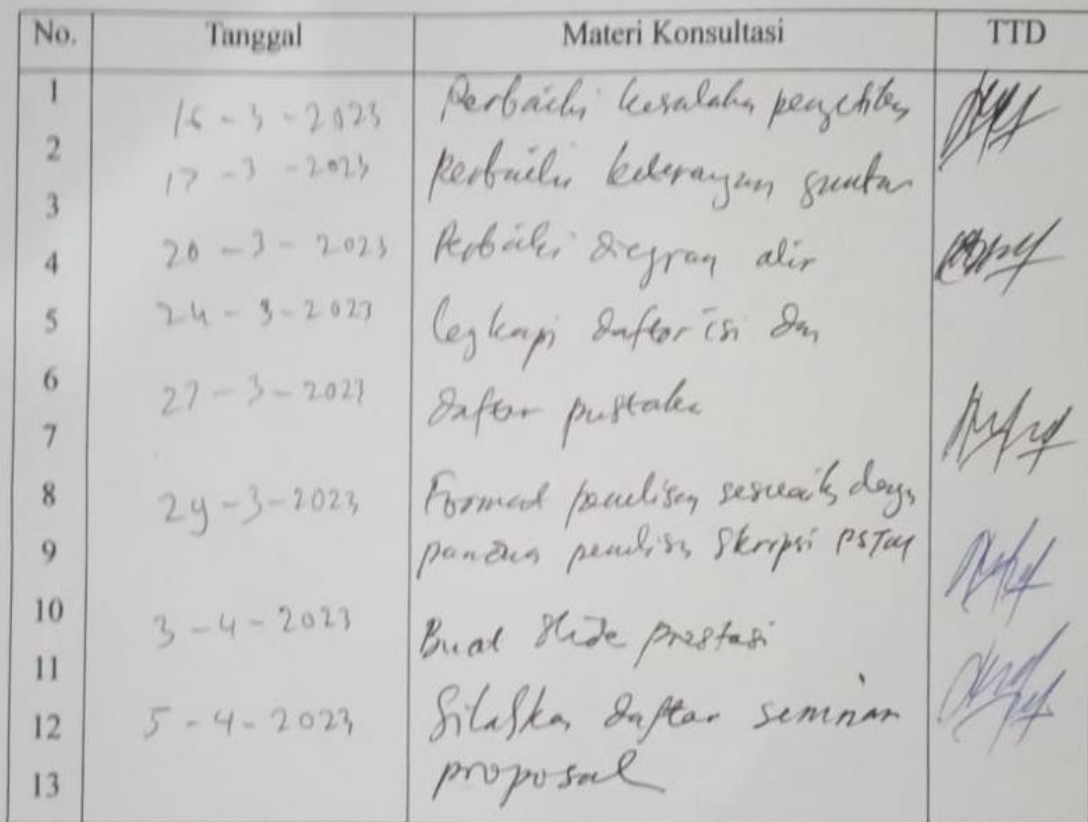 No. Tanggal Materi Konsultasi TTD
1 16 - 3 - 2023 Perbaiki kesalaha pengetikan
2 17 - 3 - 2023 Perbaiki keterangan gambar
3
4 20 - 3 - 2023 Perbaiki diagram alir
5 24 - 3 - 2023 Lengkapi daftar isi dan
6 27 - 3 - 2023 daftar pustaka
7
8 29 - 3 - 2023 Format penulisan sesuaik dengan
9 panduan penulisan skripsi PSTM
10 3 - 4 - 2023 Buat slide
11
12 5 - 4 - 2023 Silahkan daftar seminar
13 proposal